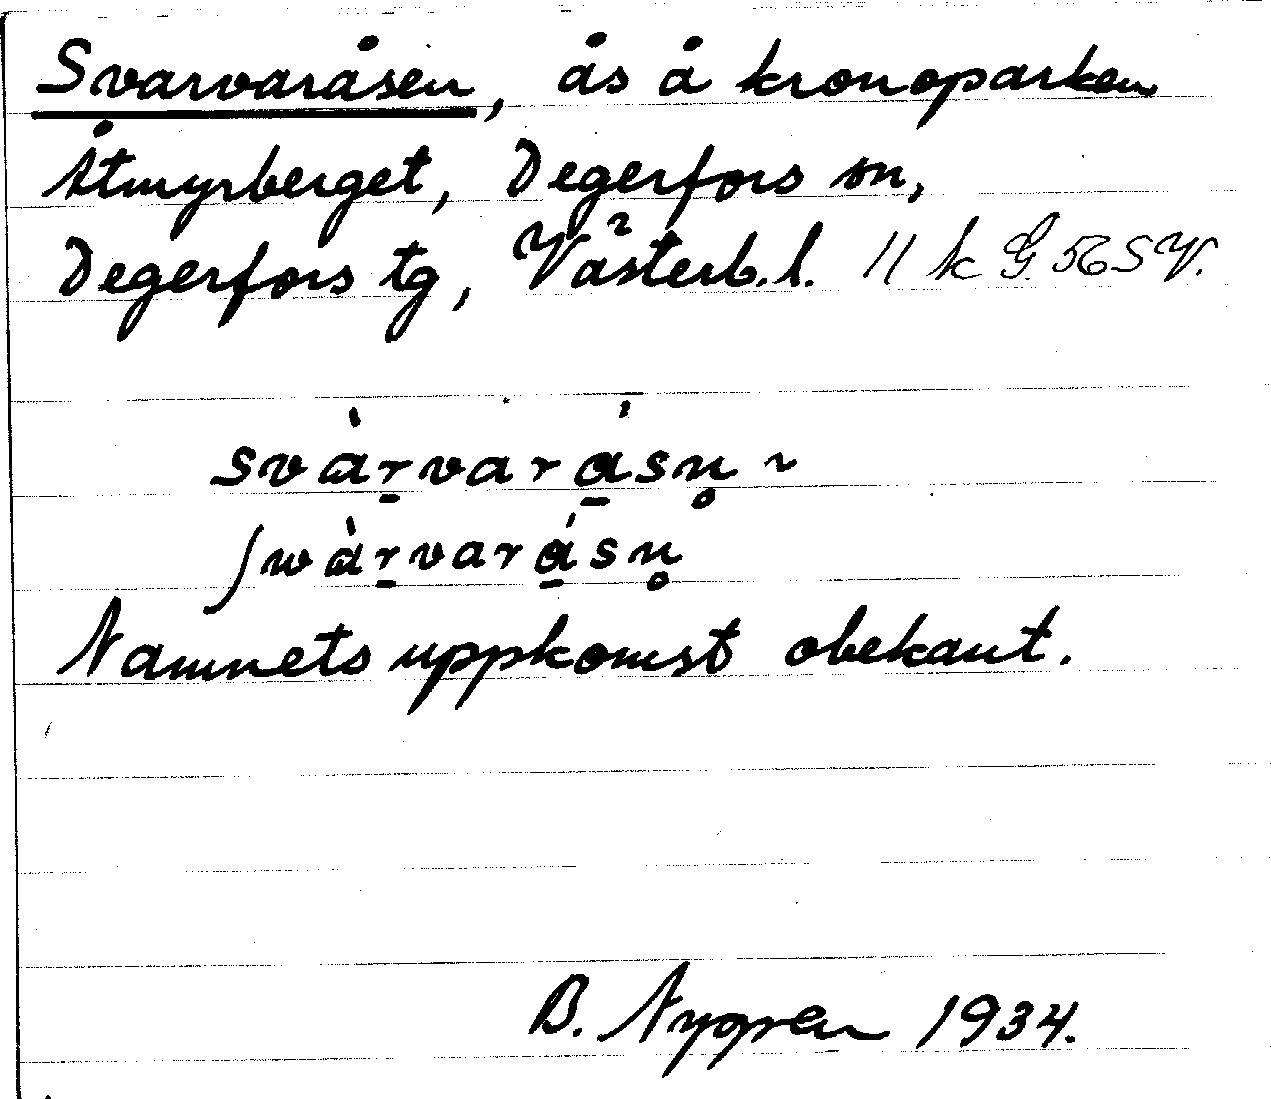 Svarvaråsen, ås å kronoparken
Åtmyrberget, Degerfors sn,
Degerfors tg, Västerb.l. 11 k G. 56 SV.
svàr̠vará̠sn̥ ~
ʃwàr̠vará̠sn̥
Namnets uppkomst obekant.
B. Nygren 1934.